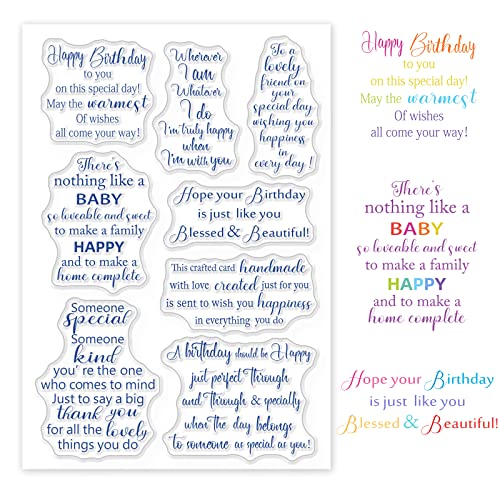 Happy Birthday
to you
on this special day!
May the warmest
Of wishes
all come your way!
Wherever
I am
Whatever
I do
I'm truly happy
when
I'm with you
To a
lovely
friend on
your
special day
wishing you
happiness
in
every day!
There's
nothing like a
BABY
so loveable and sweet
to make a family
HAPPY
and to make a
home complete
Hope your Birthday
is just like you
Blessed & Beautiful!
This crafted card handmade
with love created just for you
is sent to wish you happiness
in everything you do
Someone
special
Someone
kind
you're the one
who comes to mind
Just to say a big
thank you
for all the lovely
things you do
A birthday should be Happy
just perfect through
and through & specially
when the day belongs
to someone as special as you!
Happy Birthday
to you
on this special day!
May the warmest
Of wishes
all come your way!
There's
nothing like a
BABY
so loveable and sweet
to make a family
HAPPY
and to make a
home complete
Hope your Birthday
is just like you
Blessed & Beautiful!